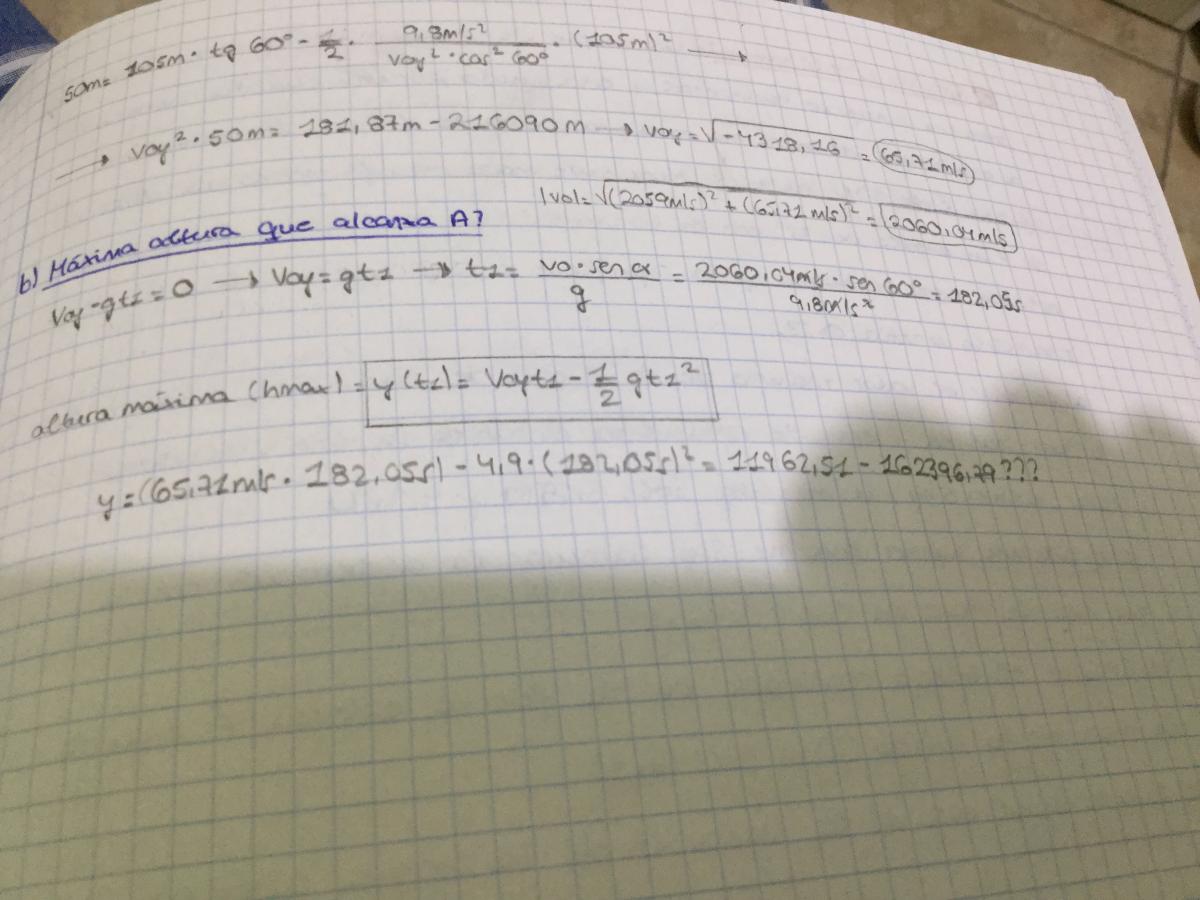 50m = 105m · tg 60° - 1/2 · 9,8m/s² / voy² · cos² 60° · (105m)² →
→ voy² · 50m = 181,87m - 216090m → voy = √-4318,16 = 65,71m/s
|vo| = √(2059m/s)² + (65,71m/s)² = 2060,04m/s
b) Máxima altura que alcanza A?
Voy - gt1 = 0 → Voy = gt1 → t1 = vo · sen α / g = 2060,04m/s · sen 60° / 9,8m/s² = 182,05s
altura máxima (hmax) = y(t1) = Voyt1 - 1/2 gt1²
y = (65,71m/s · 182,05s) - 4,9 · (182,05s)² = 11962,51 - 162396,79???